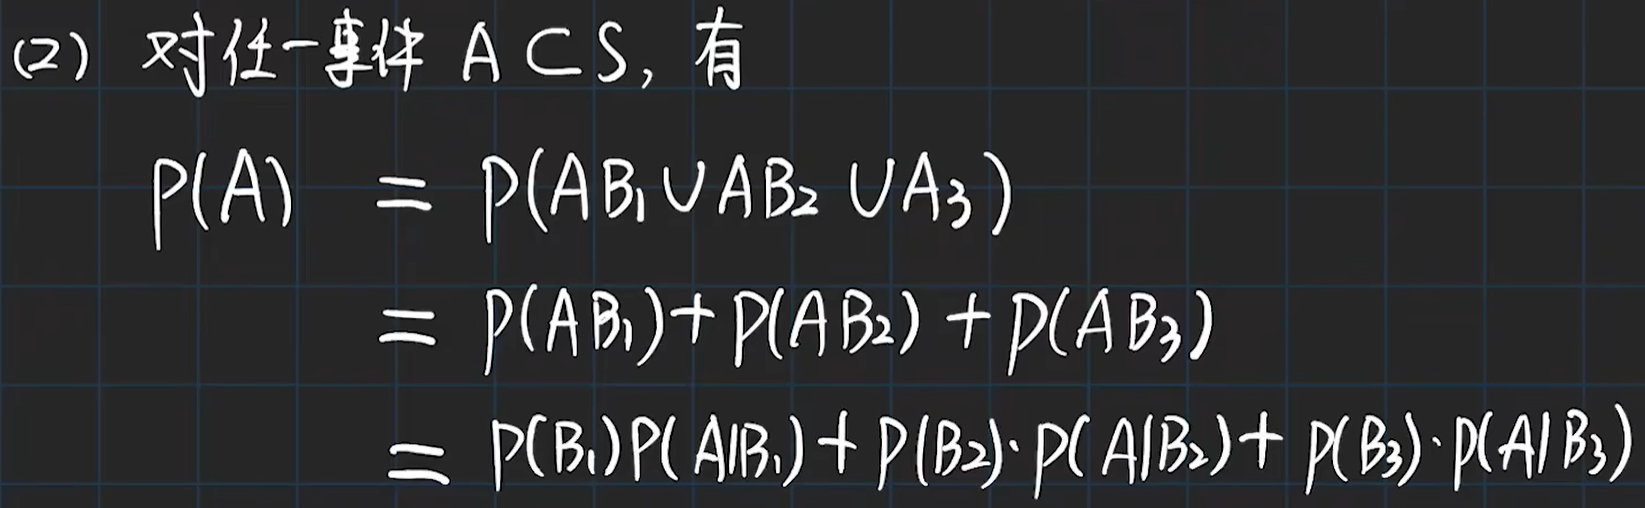 (2) 对任一事件 A⊂S, 有
P(A) = P(AB₁∪AB₂∪A₃)
= P(AB₁)+P(AB₂)+P(AB₃)
= P(B₁)P(A|B₁)+P(B₂)·P(A|B₂)+P(B₃)·P(A|B₃)